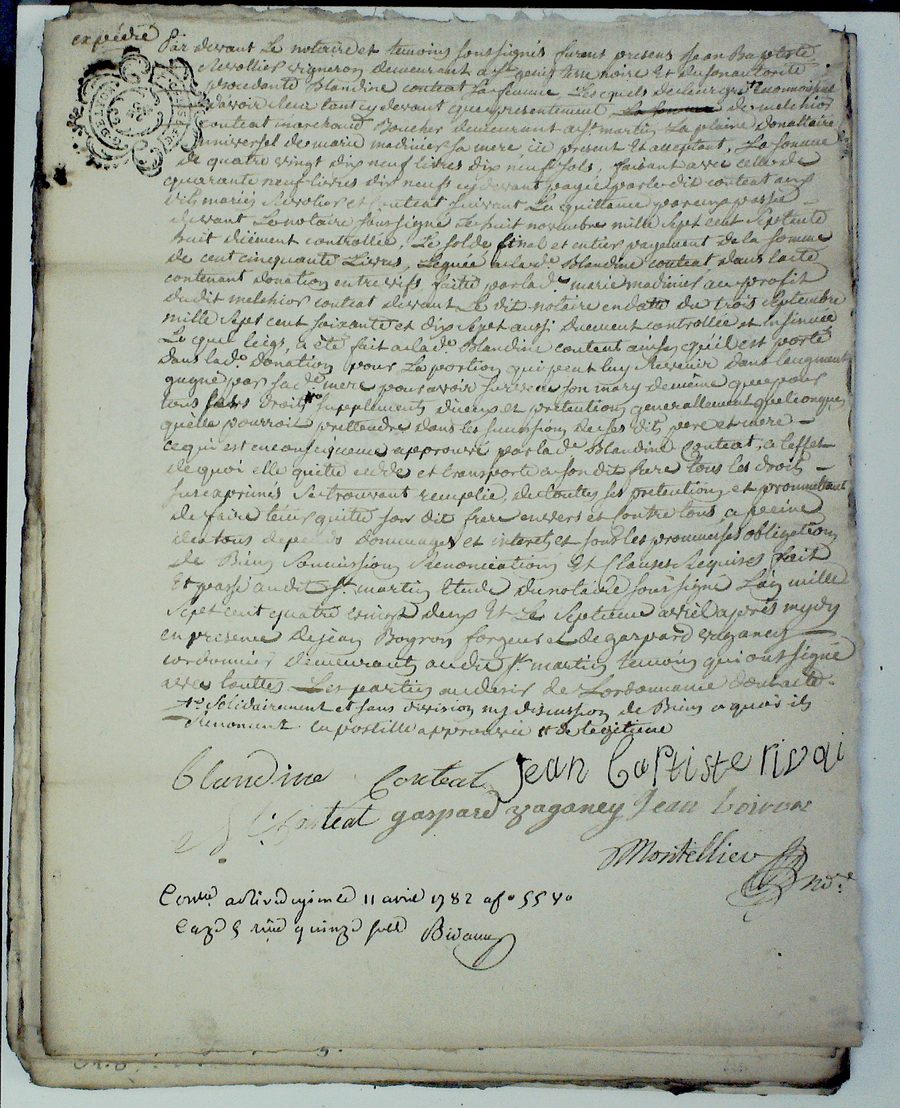 expédié
Par devant Le notaire et temoins soussignés furent presens Jean Baptiste
Revollier vigneron demeurant a St genis terre noire Et de son autorité
procedante Blandine conteat sa femme Lesquels de leur gré reconnoissent
davoir reçu tant cy devant que presentement de melchior
conteat marchand Boucher demeurant a St martin La plaine donattaire
universel de marie madinier sa mere icy present Et acceptant, La somme
de quatre vingt dix neuf livres dix neuf sols, faisant avec celle de
quarante neuf livres dix neuf cy devant payée par le dit conteat aux
dits mariés Revolier et Conteat suivant La quittance par eux passée
devant Le notaire soussigné Le huit novembre mille sept cent septante
huit düement controllée, Le solde final et entier payement de la somme
de cent cinquante Livres, Leguée a lade Blandine conteat dans lacte
contenant donation entre vifs faitte par lade marie madinier au profit
du dit melchior conteat devant Le dit notaire en datte du trois septembre
mille sept cent soixante et dix sept aussi duement controllée et insinuée
Lequel legs, a été fait a lade Blandine conteat ainsy qu'il est porté
dans lade donation pour La portion qui peut luy Revenir dans laugment
gagné par sade mere pour avoir survecu son mary de meme que pour
tous ses droits supplements divers et pretentions generallement quelconques
quelle pourroit prettendre dans les successions de ses dits pere et mere
ce qui est en consequence approuvé par lade Blandine Conteat, a leffet
de quoi elle quitte cedde et transporte a son dit frere tous les droits
sus exprimés se trouvant remplie de touttes ses pretentions et promettant
de faire tenir quitte son dit frere envers et contre tous, a peine
de tous depends dommages et interets et sous les promesses obligations
de Biens soumissions Renonciations Et Clauses Requises fait
Et passé audit St martin Etude du notaire soussigné L'an mille
sept cent quatre vingt deux Et Le septieme avril après mydy
en presence de jean Bogron forgeur et de gaspard vaganey
cordonnier demeurants audit St martin temoins qui ont signé
avec touttes Les parties au desir de Lordonnance
solidairement et sans division ny discussion de Biens a quoi ils
Renoncent en postille approuvée de legitime
Blandine Conteat Jean Baptiste rivoai
M Conteat gaspard vaganey Jean
Montellier nore
Conlé a Rivedegier le 11 avril 1782 fo 55 Vo
Reçu quinze sols